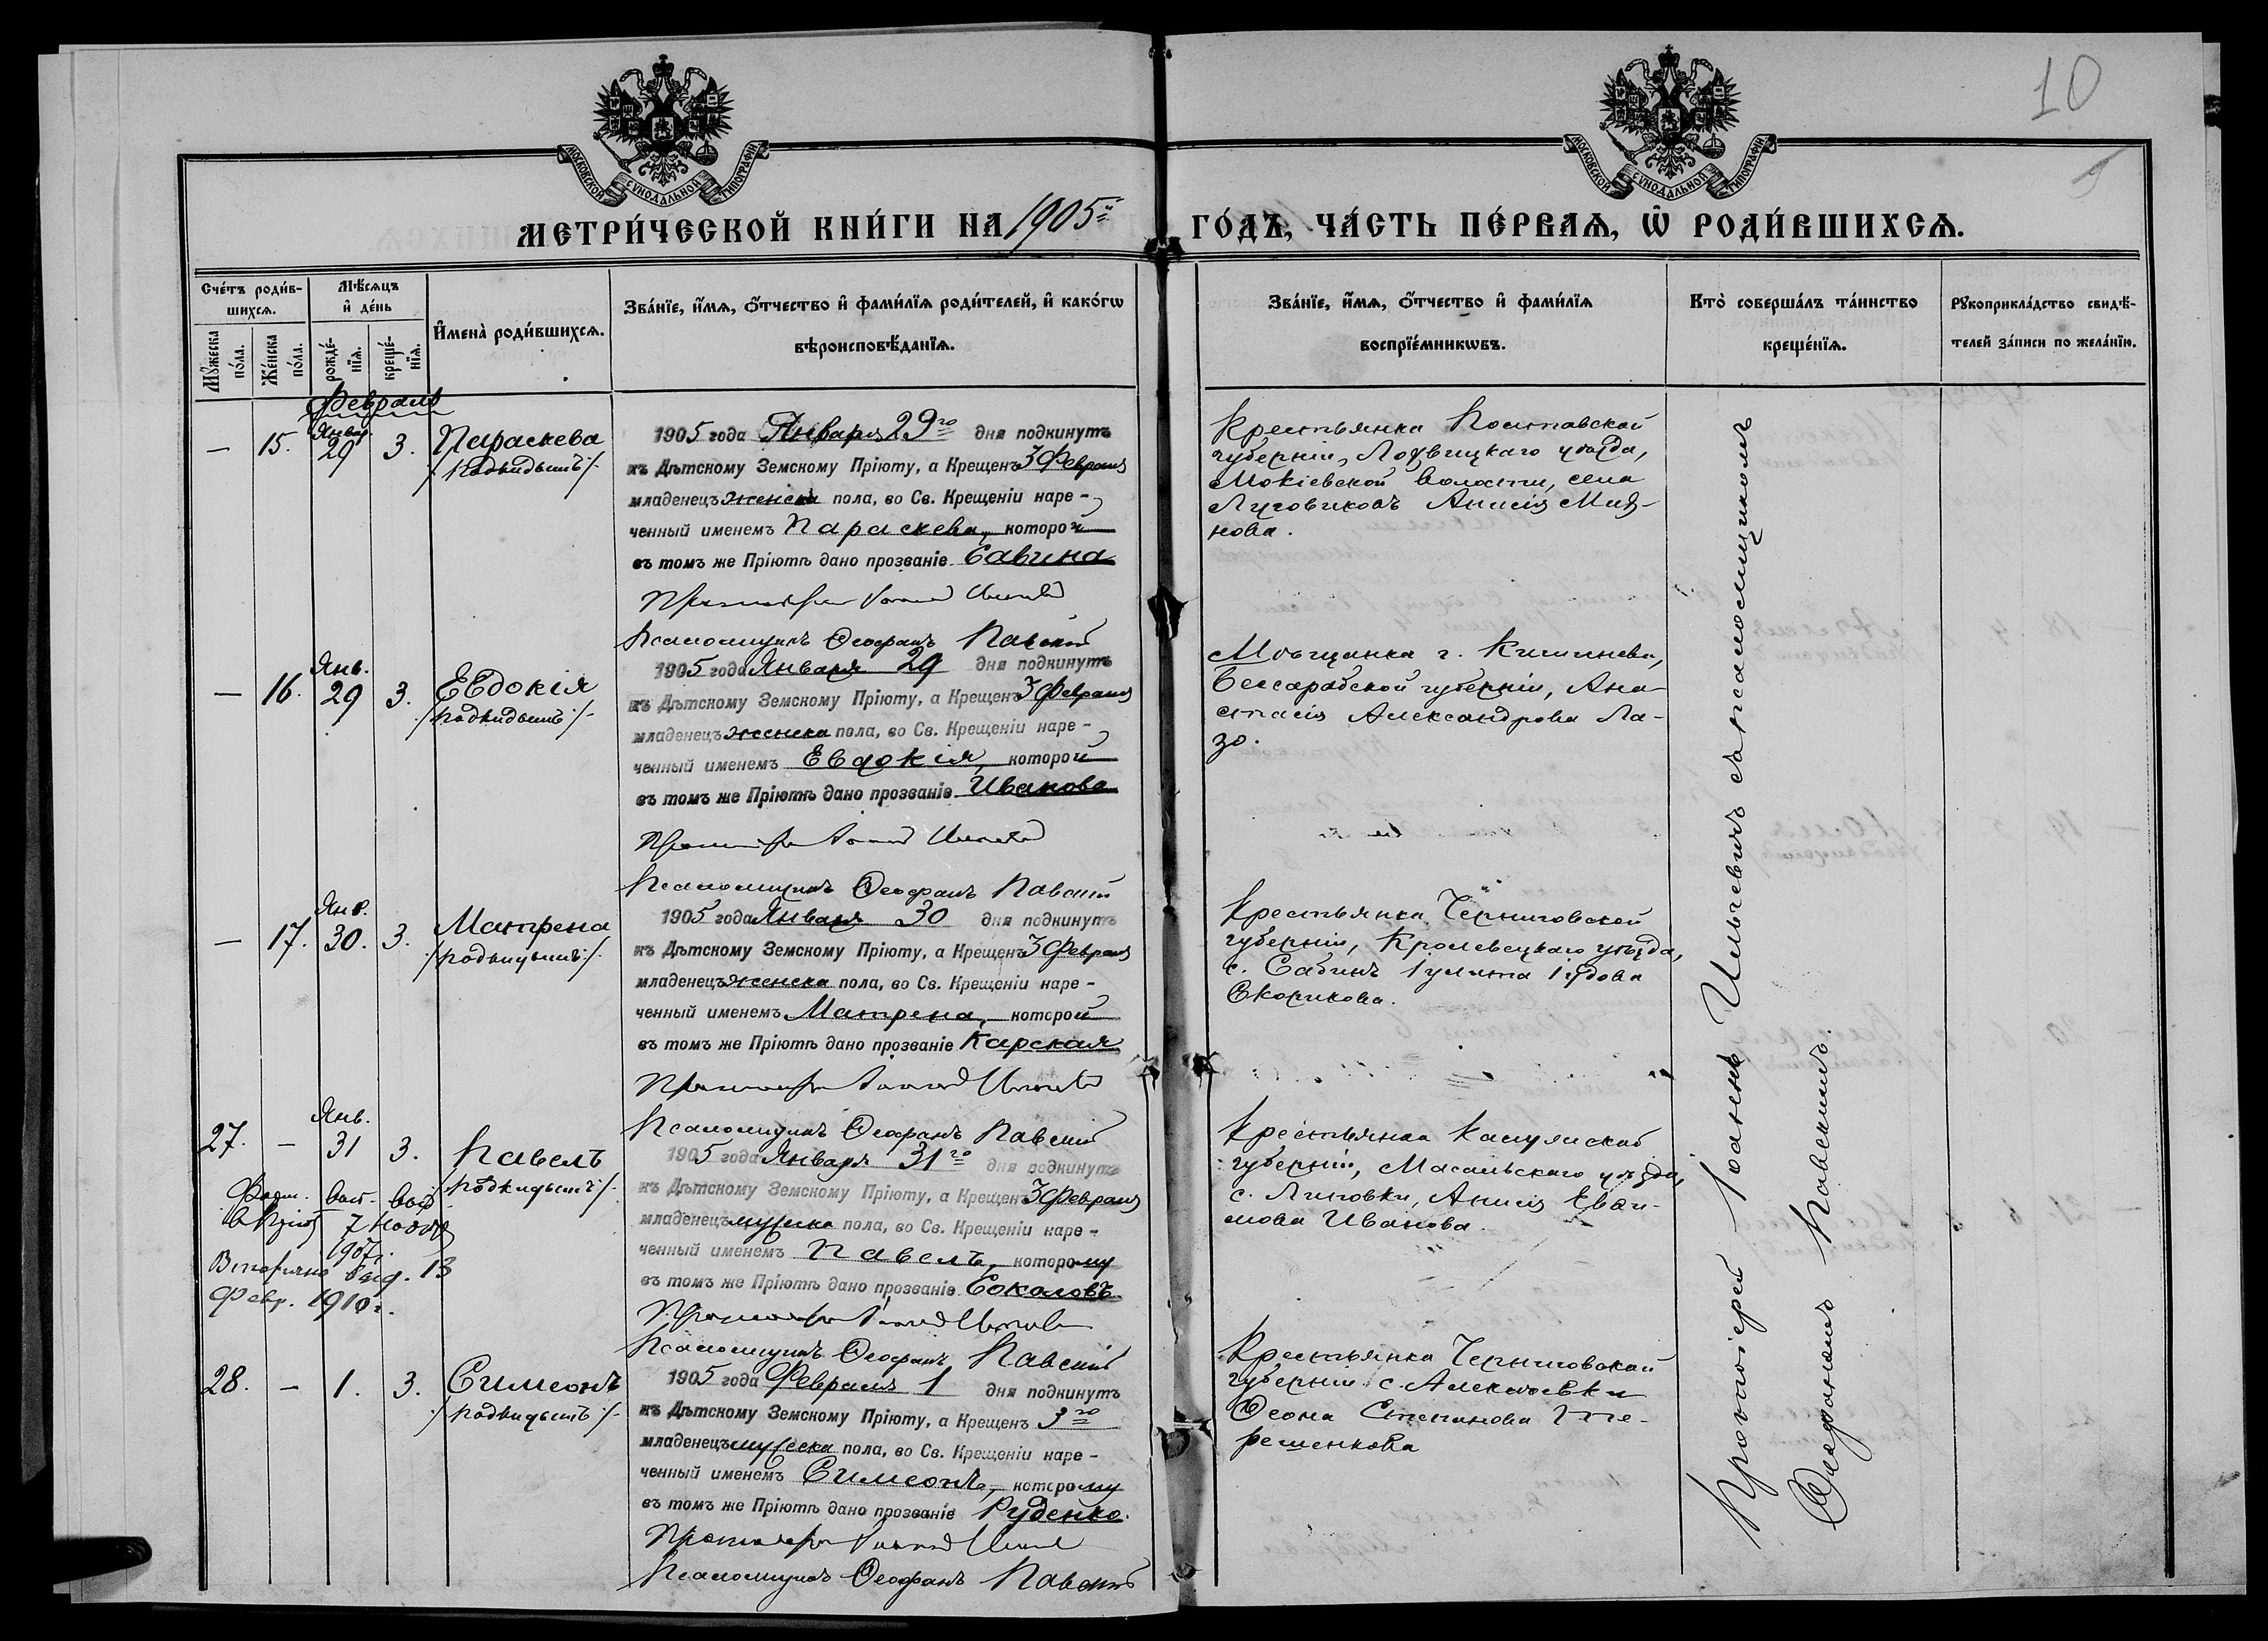 10
МОСКОВСКОЙ СѴНОДАЛЬНОЙ ТИПОГРАФІИ
МОСКОВСКОЙ СѴНОДАЛЬНОЙ ТИПОГРАФІИ
МЕТРИ́ЧЕСКОЙ КНИ́ГИ НА 1905й ГО́ДЪ, ЧА́СТЬ ПЕ́РВАѦ, Ѿ РОДИ́ВШИХСѦ.
Сче́тъ роди́в-
шихсѧ.
Мꙋжеска по́ла.
Же́нска по́ла.
Мѣ́сѧцъ
и҆ де́нь
рожде́-
нїѧ.
креще́-
нїѧ.
И҆мена̀ роди́вшихсѧ.
Зва́нїе, и҆́мѧ, ѻ҆́тчество и҆ фами́лїѧ роди́телей, и҆ како́гѡ
вѣроисповѣ́данїѧ.
Зва́нїе, и҆́мѧ, ѻ҆́тчество и҆ фами́лїѧ
воспрїе́мникѡвъ.
Кто̀ соверша́лъ та́инство
креще́нїѧ.
Рꙋкоприкла́дство свидѣ́-
телей за́писи по жела́нїю.
Февраль
— 15. Январ. 29 3. Параскева
/:подкидышъ:/
1905 года Января 29го дня подкинутъ
къ Дѣтскому Земскому Пріюту, а Крещенъ 3 Февраля
младенецъ женска пола, во Св. Крещеніи наре-
ченный именемъ Параскева, которой
въ томъ же Пріютѣ дано прозваніе Савина
Псаломщикъ Ѳеофанъ Павскій
Крестьянка Полтавской
губерніи, Лохвицкаго уѣзда,
Мокіевской волости, села
Луговиковъ Анисія
нова.
— 16. Янв. 29 3. Евдокія
/:подкидышъ:/
1905 года Января 29 дня подкинутъ
къ Дѣтскому Земскому Пріюту, а Крещенъ 3 Февраля
младенецъ женска пола, во Св. Крещеніи наре-
ченный именемъ Евдокія, которой
въ томъ же Пріютѣ дано прозваніе Иванова
Псаломщикъ Ѳеофанъ Павскій
Мѣщанка г. Кишинева,
Бессарабской губерніи, Ана-
стасія Александрова Ла-
зо.
— 17. Янв. 30. 3. Матрена
/:подкидышъ:/
1905 года Января 30 дня подкинутъ
къ Дѣтскому Земскому Пріюту, а Крещенъ 3 Февраля
младенецъ женска пола, во Св. Крещеніи наре-
ченный именемъ Матрена, которой
въ томъ же Пріютѣ дано прозваніе Карская
Псаломщикъ Ѳеофанъ Павскій
Крестьянка Черниговской
губерніи, Кролевецкаго уѣзда,
с. Іулита
Скорикова.
27. — Янв. 31 3. Павелъ
/:подкидышъ:/
1907г.
Вторично выд. 13
Февр. 1910г.
1905 года Января 31го дня подкинутъ
къ Дѣтскому Земскому Пріюту, а Крещенъ 3 Февраля
младенецъ мужеска пола, во Св. Крещеніи наре-
ченный именемъ Павелъ, которому
въ томъ же Пріютѣ дано прозваніе Соколовъ.
Псаломщикъ Ѳеофанъ Павскій
Крестьянка Калужской
губерніи, Масальскаго уѣзда,
с. Липовки, Анисія
Иванова.
28. — 1. 3. Симеонъ
/:подкидышъ:/
1905 года Февраля 1 дня подкинутъ
къ Дѣтскому Земскому Пріюту, а Крещенъ 3го
младенецъ мужеска пола, во Св. Крещеніи наре-
ченный именемъ Симеонъ, которому
въ томъ же Пріютѣ дано прозваніе Руденко.
Псаломщикъ Ѳеофанъ Павскій
Крестьянка Черниговской
губерніи с. Алексѣевки
Степанова Те-
решенкова
Протоіерей Іоаннъ Ильичевъ съ псаломщикомъ
Ѳеофаномъ Павскимъ.